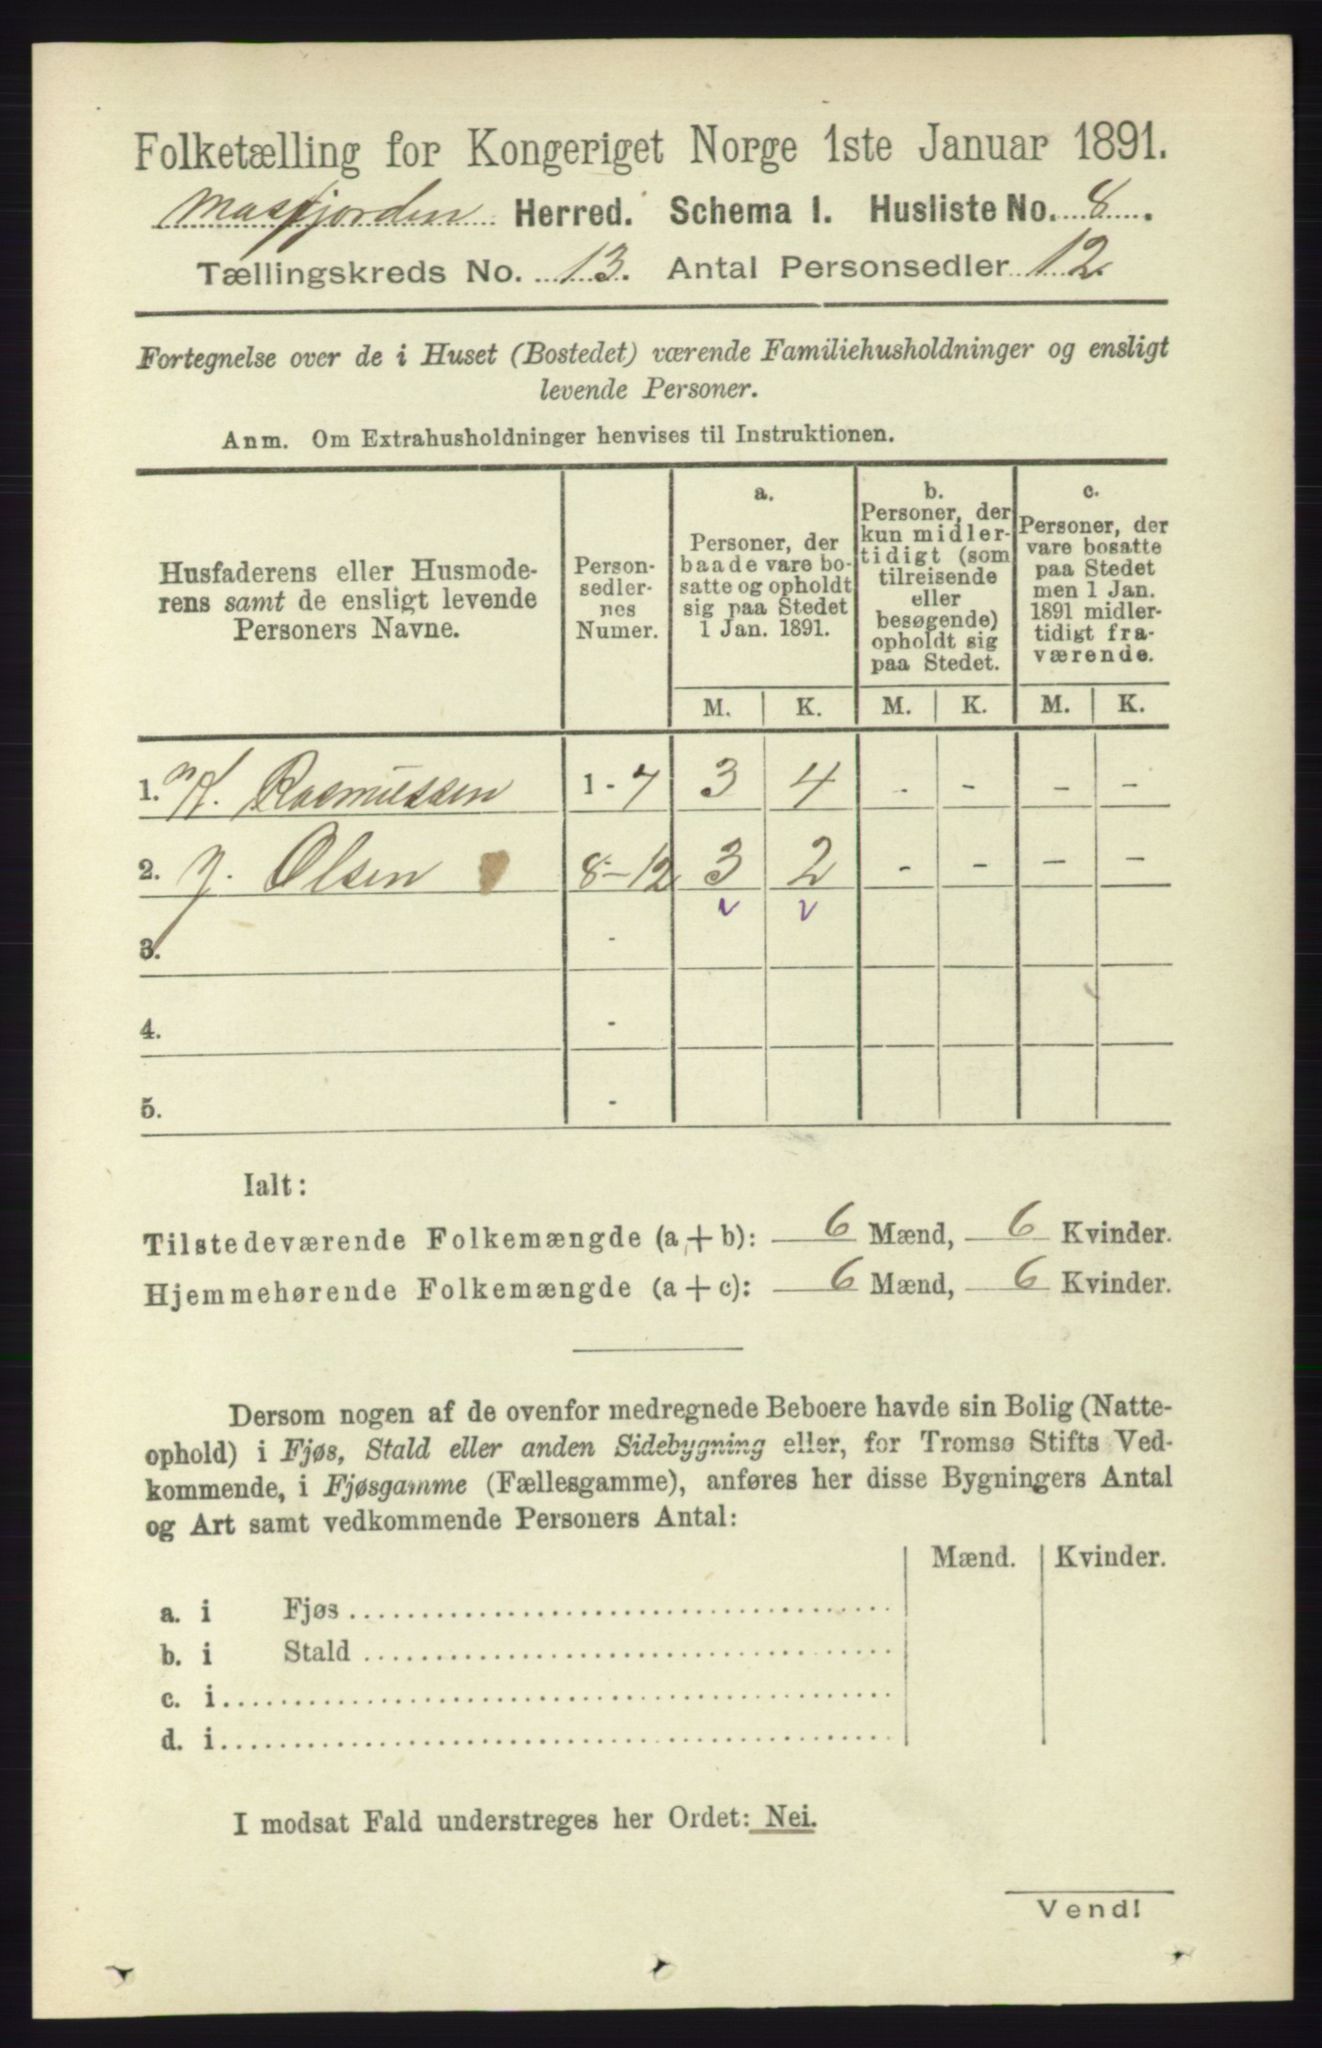 Folketælling for Kongeriget Norge 1ste Januar 1891.
Masfjorden Herred. Schema I. Husliste No. 8.
Tællingskreds No. 13. Antal Personsedler 12.
Fortegnelse over de i Huset (Bostedet) værende Familiehusholdninger og ensligt
levende Personer.
Anm. Om Extrahusholdninger henvises til Instruktionen.
Husfaderens eller Husmode-
rens samt de ensligt levende
Personers Navne.
Person-
sedler-
nes
Numer.
a.
Personer, der
baade vare bo-
satte og opholdt
sig paa Stedet
1 Jan. 1891.
b.
Personer, der
kun midler-
tidigt (som
tilreisende
eller
besøgende)
opholdt sig
paa Stedet.
c.
Personer, der
vare bosatte
paa Stedet
men 1 Jan.
1891 midler-
tidigt fra-
værende.
M. K. M. K. M. K.
1. K. Rasmussen 1-7 3 4 - - - -
2. Olsen 8-12 3 2 - - - -
3. -
4. -
5. -
Ialt:
Tilstedeværende Folkemængde (a+b): 6 Mænd, 6 Kvinder.
Hjemmehørende Folkemængde (a+c): 6 Mænd, 6 Kvinder.
Dersom nogen af de ovenfor medregnede Beboere havde sin Bolig (Natte-
ophold) i Fjøs, Stald eller anden Sidebygning eller, for Tromsø Stifts Ved-
kommende, i Fjøsgamme (Fællesgamme), anføres her disse Bygningers Antal
og Art samt vedkommende Personers Antal:
Mænd. Kvinder.
a. i Fjøs
b. i Stald
c. i
d. i
I modsat Fald understreges her Ordet: Nei.
Vend!